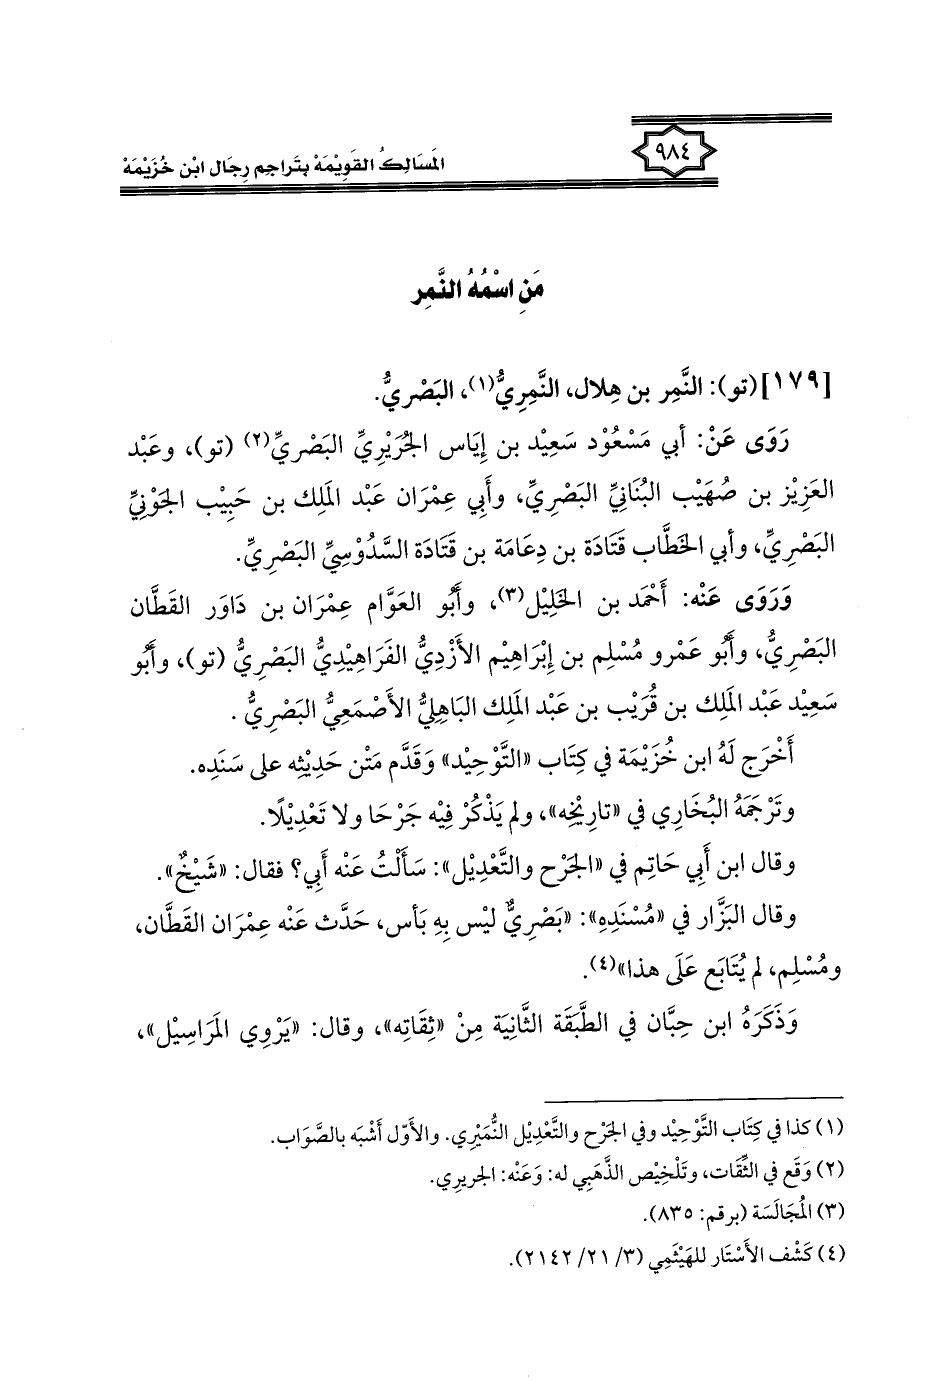 ٩٨٤
المَسَالِكُ القَوِيْمَة بِتَراجِم رِجَال ابْن خُزَيْمَة
مَنِ اسْمُهُ النَّمِر
[١٧٩] (تو): النَّمِر بن هِلال، النَّمِرِيُّ(١)، البَصْرِيُّ.
رَوَى عَنْ: أبي مَسْعُوْد سَعِيْد بن إِيَاس الجُرَيْرِيِّ البَصْرِيِّ(٢) (تو)، وعَبْد
العَزِيْز بن صُهَيْب البُنَانِيِّ البَصْرِيِّ، وأَبِي عِمْرَان عَبْد المَلِك بن حَبِيْب الجَوْنِيِّ
البَصْرِيِّ، وأبي الخَطَّاب قَتَادَة بن دِعَامَة بن قَتَادَة السَّدُوْسِيِّ البَصْرِيِّ.
وَرَوَى عَنْه: أَحْمَد بن الخَلِيْل(٣)، وأَبُو العَوَّام عِمْرَان بن دَاوَر القَطَّان
البَصْرِيُّ، وأَبُو عَمْرو مُسْلِم بن إِبْرَاهِيْم الأَزْدِيُّ الفَرَاهِيْدِيُّ البَصْرِيُّ (تو)، وأَبُو
سَعِيْد عَبْد المَلِك بن قُرَيْب بن عَبْد المَلِك البَاهِلِيُّ الأَصْمَعِيُّ البَصْرِيُّ.
أَخْرَج لَهُ ابن خُزَيْمَة في كِتَاب «التَّوْحِيْد» وَقَدَّم مَتْن حَدِيْثِه على سَنَدِه.
وتَرْجَمَهُ البُخَاري في «تارِيْخِه»، ولم يَذْكُرْ فِيْه جَرْحَا ولا تَعْدِيْلًا.
وقال ابن أَبِي حَاتِم في «الجَرْح والتَّعْدِيْل»: سَأَلْتُ عَنْه أَبي؟ فقال: «شَيْخٌ».
وقال البَزَّار في «مُسْنَدِهِ»: «بَصْرِيٌّ ليْس بِهِ بَأس، حَدَّث عَنْه عِمْرَان القَطَّان،
ومُسْلِم، لم يُتَابَع عَلَى هذا»(٤).
وَذَكَرَهُ ابن حِبَّان في الطَّبَقَة الثَّانِيَة مِنْ «ثِقَاتِه»، وقال: «يَرْوِي المَرَاسِيْل»،
(١) كذا في كِتَاب التَّوْحِيْد وفي الجَرْح والتَّعْدِيْل النُّمَيْرِي. والأوّل أشْبَه بالصَّوَاب.
(٢) وَقَع في الثِّقَات، وتَلْخِيْص الذَّهَبِي له: وَعَنْه: الجريري.
(٣) المُجَالَسَة (برقم: ٨٣٥).
(٤) كَشْف الأَسْتَار للهَيْثَمِي (٣/ ٢١/ ٢١٤٢).